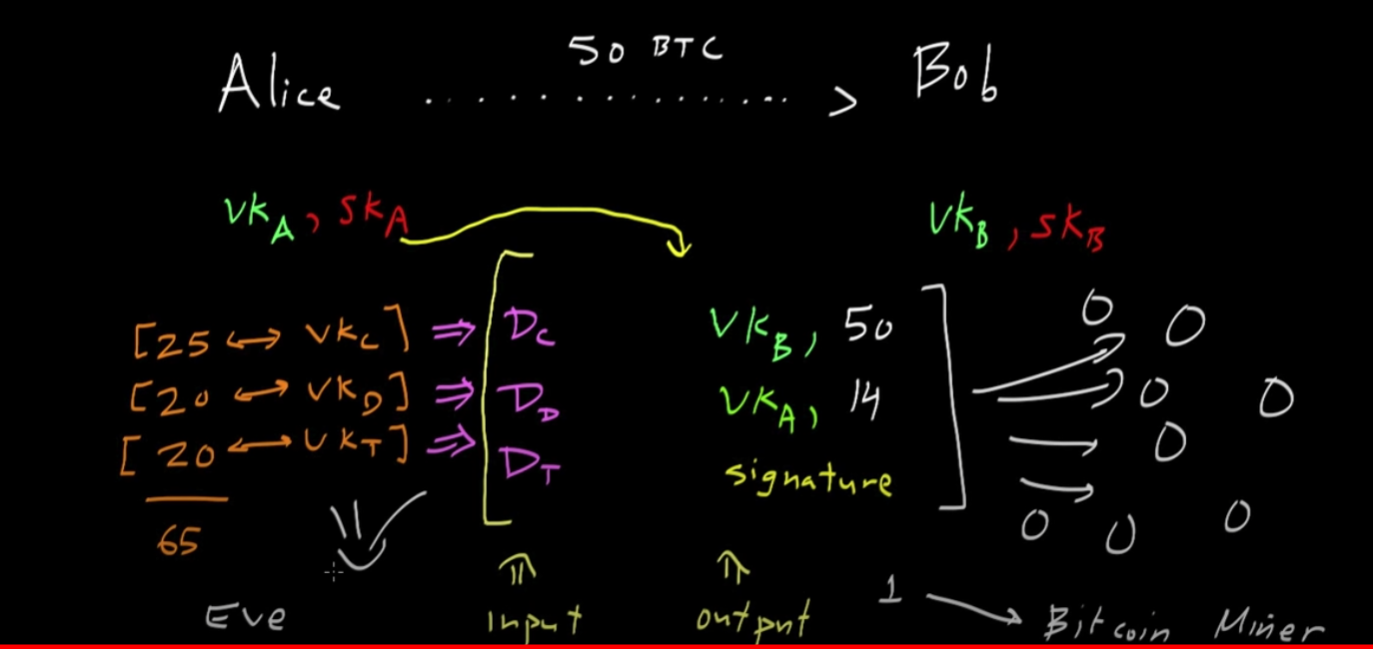 50 BTC
Alice ............... > Bob
VKA, SKA
VKB, SKB
[25 ↔ VKC] ⇒ DC
[20 ↔ VKD] ⇒ DD
[20 ↔ VKT] ⇒ DT
65
VKB, 50
VKA, 14
signature
Eve
input
output
1 → Bitcoin Miner